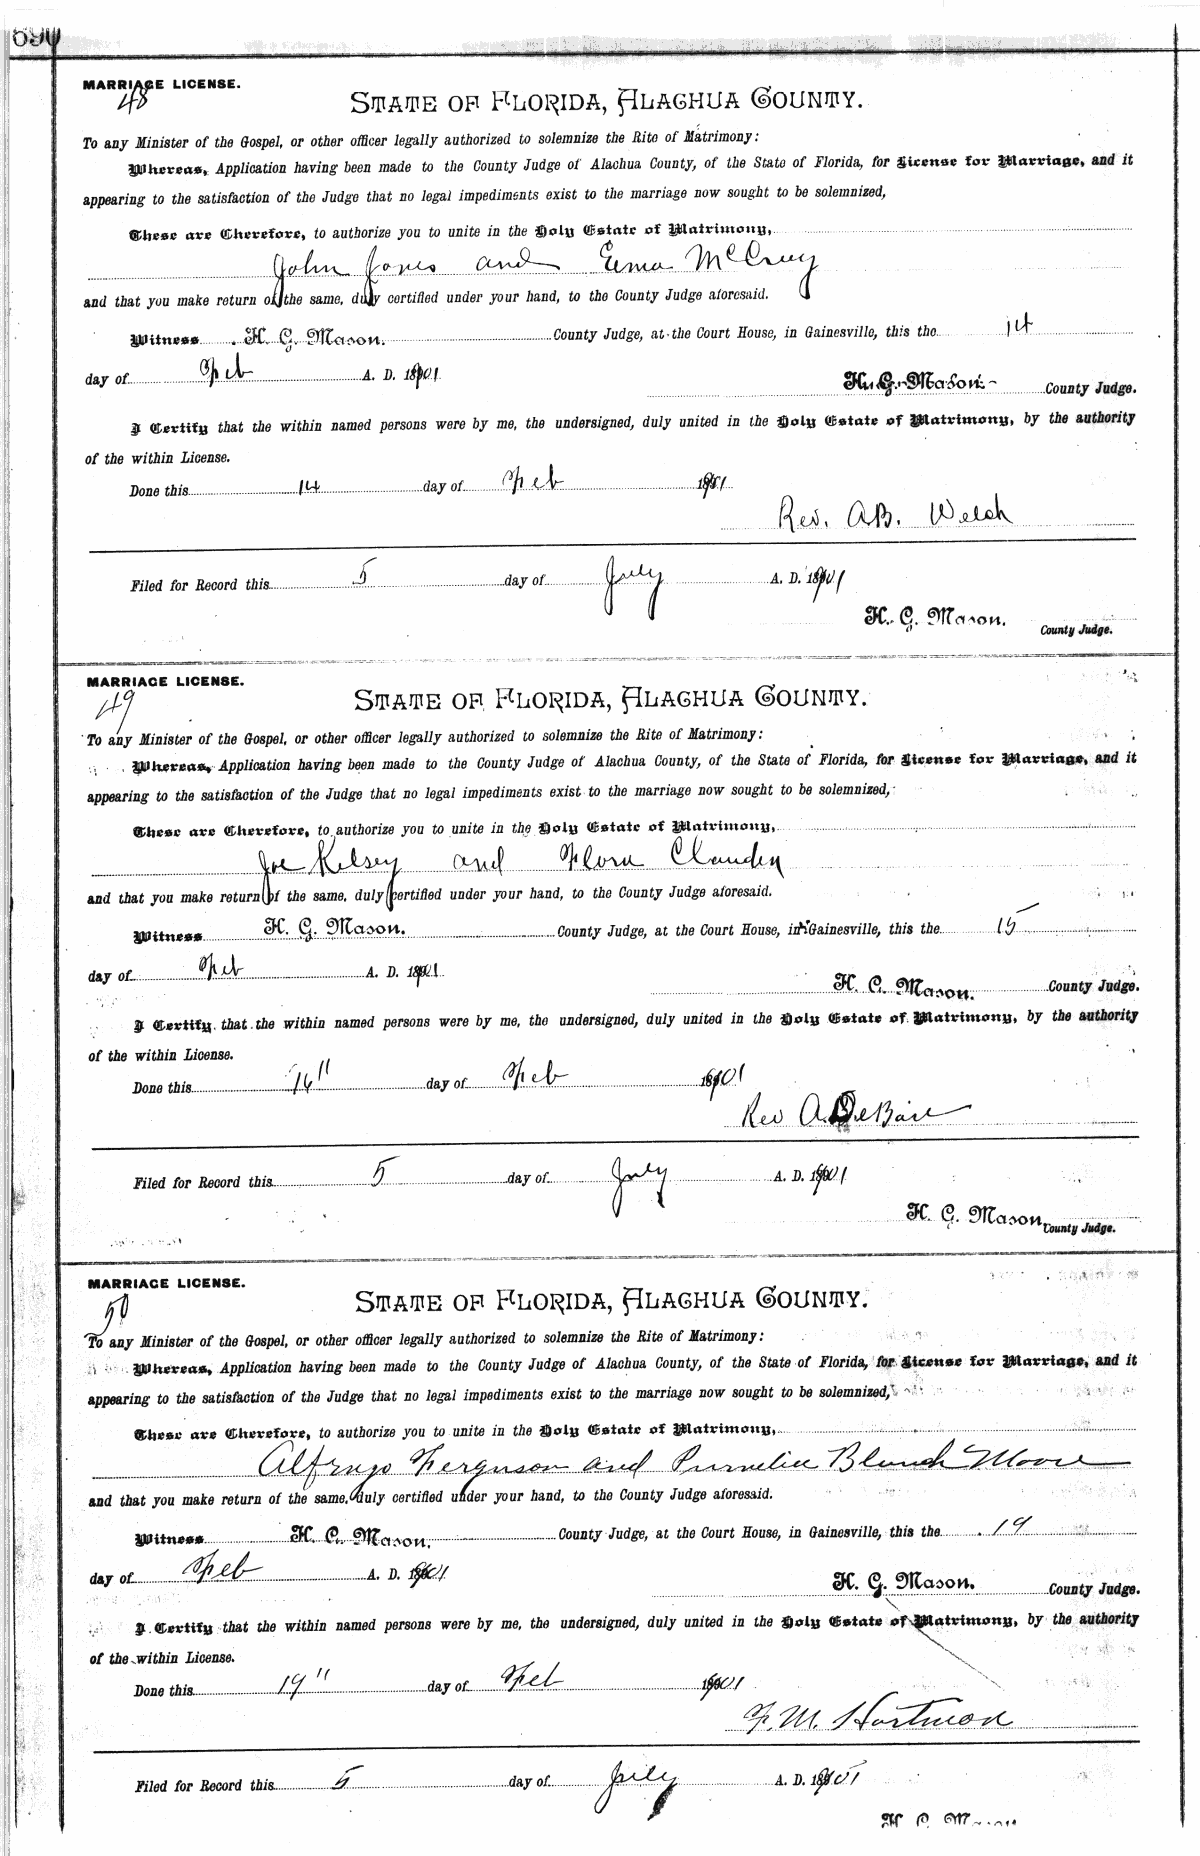 690
MARRIAGE LICENSE.
48
STATE OF FLORIDA, ALACHUA COUNTY.
To any Minister of the Gospel, or other officer legally authorized to solemnize the Rite of Matrimony:
Whereas, Application having been made to the County Judge of Alachua County, of the State of Florida, for License for Marriage, and it
appearing to the satisfaction of the Judge that no legal impediments exist to the marriage now sought to be solemnized,
These are Therefore, to authorize you to unite in the Holy Estate of Matrimony,
John Jones and Erma McCruy
and that you make return of the same, duly certified under your hand, to the County Judge aforesaid.
Witness H. G. Mason. County Judge, at the Court House, in Gainesville, this the 14
day of Feb A. D. 1901
H. G. Mason. County Judge.
I Certify that the within named persons were by me, the undersigned, duly united in the Holy Estate of Matrimony, by the authority
of the within License.
Done this 14 day of Feb 1901
Rev. A.B. Welch
Filed for Record this 5 day of July A. D. 1901
H. G. Mason.
County Judge.
MARRIAGE LICENSE.
49
STATE OF FLORIDA, ALACHUA COUNTY.
To any Minister of the Gospel, or other officer legally authorized to solemnize the Rite of Matrimony:
Whereas, Application having been made to the County Judge of Alachua County, of the State of Florida, for License for Marriage, and it
appearing to the satisfaction of the Judge that no legal impediments exist to the marriage now sought to be solemnized,
These are Therefore, to authorize you to unite in the Holy Estate of Matrimony,
Joe Kelsey and Flora
and that you make return of the same, duly certified under your hand, to the County Judge aforesaid.
Witness H. G. Mason. County Judge, at the Court House, in Gainesville, this the 15
day of Feb A. D. 1901
H. G. Mason. County Judge.
I Certify that the within named persons were by me, the undersigned, duly united in the Holy Estate of Matrimony, by the authority
of the within License.
Done this 16" day of Feb 1901
Rev A. DeBose
Filed for Record this 5 day of July A. D. 1901
H. G. Mason.
County Judge.
MARRIAGE LICENSE.
50
STATE OF FLORIDA, ALACHUA COUNTY.
To any Minister of the Gospel, or other officer legally authorized to solemnize the Rite of Matrimony:
Whereas, Application having been made to the County Judge of Alachua County, of the State of Florida, for License for Marriage, and it
appearing to the satisfaction of the Judge that no legal impediments exist to the marriage now sought to be solemnized,
These are Therefore, to authorize you to unite in the Holy Estate of Matrimony,
Ferguson and Purnelia Blanch Moore
and that you make return of the same, duly certified under your hand, to the County Judge aforesaid.
Witness H. G. Mason. County Judge, at the Court House, in Gainesville, this the 19
day of Feb A. D. 1901
H. G. Mason. County Judge.
I Certify that the within named persons were by me, the undersigned, duly united in the Holy Estate of Matrimony, by the authority
of the within License.
Done this 19" day of Feb 1901
F. M. Hartman
Filed for Record this 5 day of July A. D. 1901
H. G. Mason